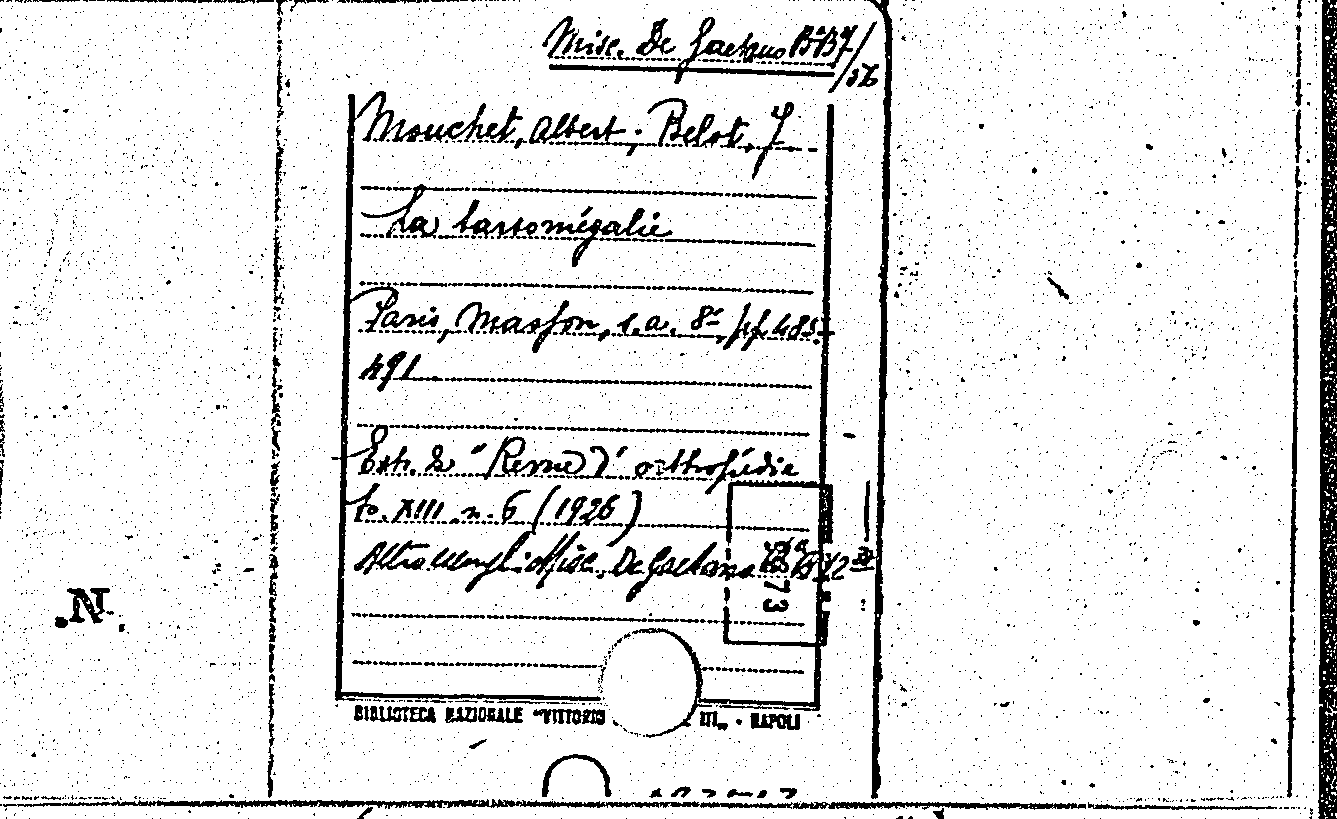 Misc. De Gaetano B
Mouchet, Albert; Belot, J.
La tarsomégalie
Paris, Masson, s.a. 8° pp. 485-
491
Estr. da "Revue d'orthopédie
to. XIII n. 6 (1926)
Altro Misc. De Gaetano
73
.N.
BIBLIOTECA NAZIONALE "VITTORIO III„ - NAPOLI